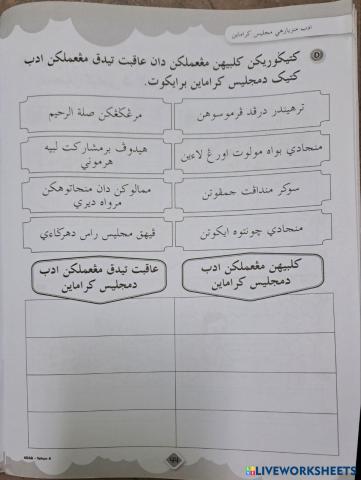 ادب منزيارهي مجليس كرامأين
D
كتيݢوريكن كلبيهن مڠعملكن دان عاقبت تيدق مڠعملكن ادب
كتيک دمجليس كرامأين برايكوت.
ترهيندر درڤد ڤرموسوهن
مرڠݢڠكن صلة الرحيم
منجادي بواه مولوت اورڠ لاءين
هيدوڤ برمشاركت لبيه هرموني
سوكر منداڤت جمڤوتن
ممالوكن دان منجاتوهكن مرواه ديري
منجادي چونتوه ايكوتن
ڤيهق مجليس راس دهركاءي
كلبيهن مڠعملكن ادب
دمجليس كرامأين
عاقبت تيدق مڠعملكن ادب
دمجليس كرامأين
LIVEWORKSHEETS